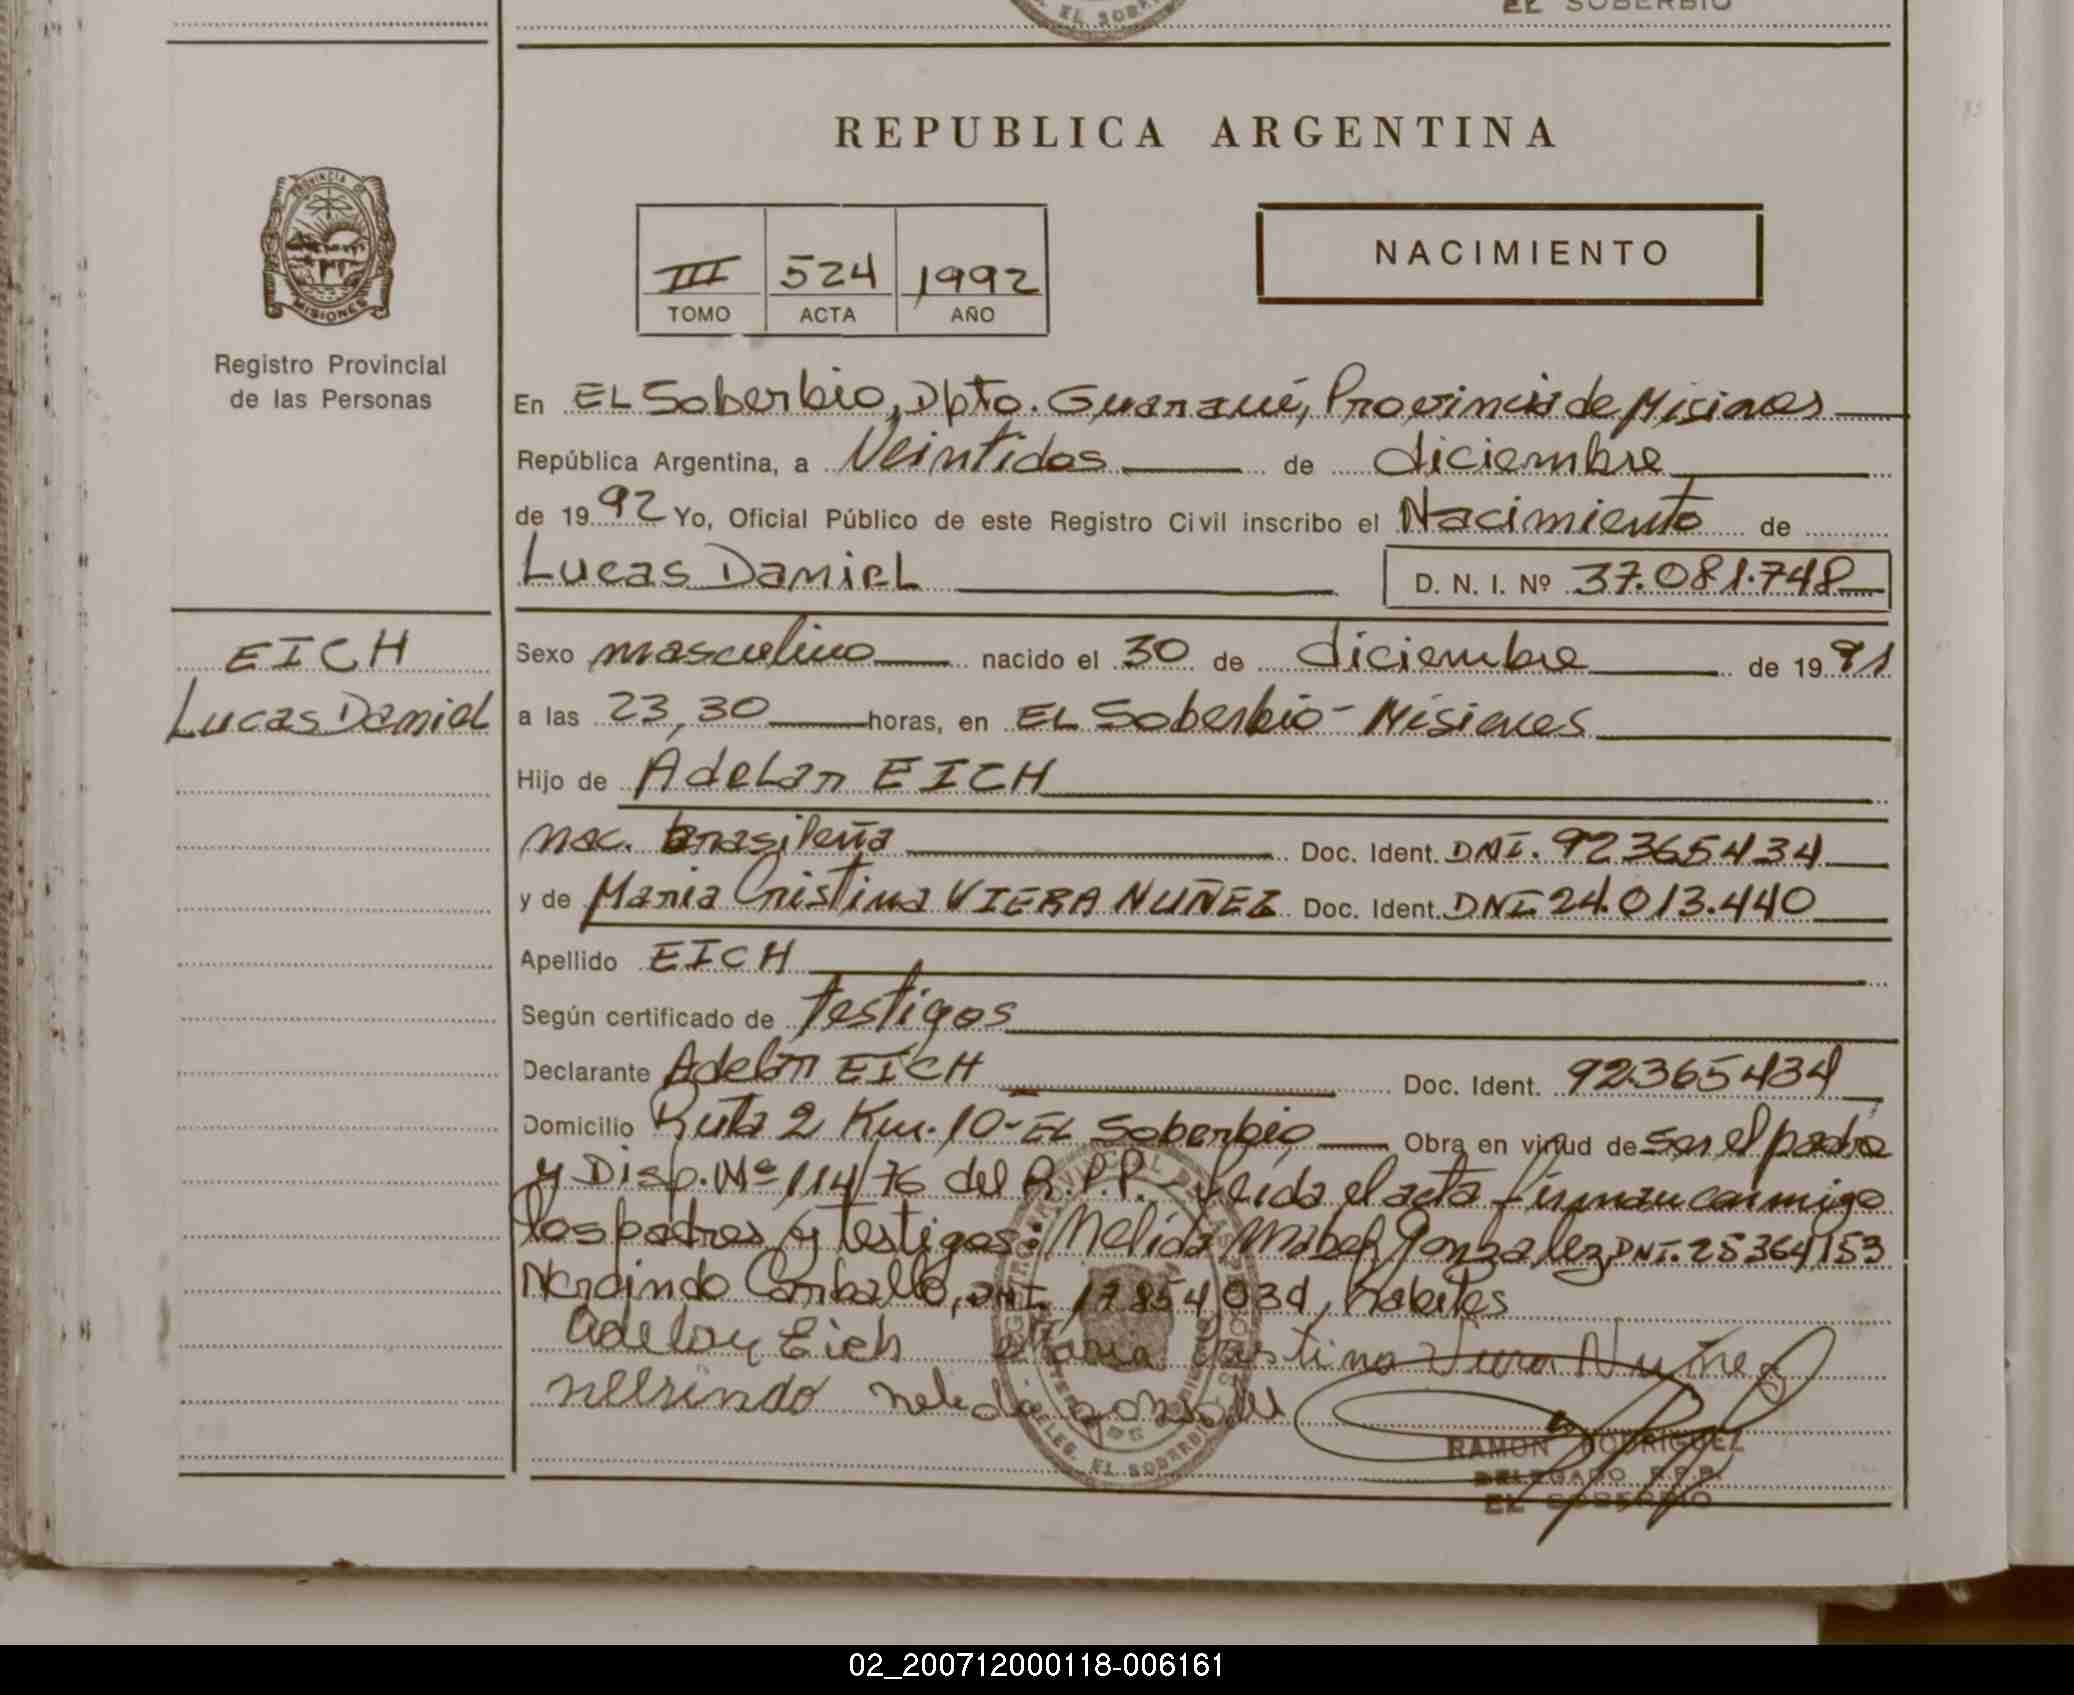 EL SOBERBIO
REPUBLICA ARGENTINA
PROVINCIA DE
MISIONES
Registro Provincial
de las Personas
III 524 1992
TOMO ACTA AÑO
NACIMIENTO
En EL Soberbio, Dpto. Guaraní, Provincia de Misiones
República Argentina, a Veintidos de diciembre
de 1992 Yo, Oficial Público de este Registro Civil inscribo el Nacimiento de
Lucas Daniel D. N. I. Nº 37.081.748
EICH
Lucas Daniel
Sexo masculino nacido el 30 de diciembre de 1991
a las 23,30 horas, en EL Soberbio - Misiones
Hijo de Adelar EICH
nac. brasileña Doc. Ident. DNI. 92365434
y de Maria Cristina VIERA NUÑEZ Doc. Ident. DNI. 24.013.440
Apellido EICH
Según certificado de testigos
Declarante Adelar EICH Doc. Ident. 92.365434
Domicilio Ruta 2 Km. 10 - EL Soberbio Obra en virtud de ser el padre
y Disp. Nº 114/76 del R.P.P. - Leida el acta firman conmigo
los padres y testigos: Nelida Mabel Gonzalez, DNI. 25364153
Nerdindo Carballo, DNI. 17854034, habiles
adelar Eich Maria Cristina Viera Nuñez
nerindo nelida gonzalez
EL SOBERBIO
RAMON RODRIGUEZ
DELEGADO R.P.P.
EL SOBERBIO
02_200712000118-006161